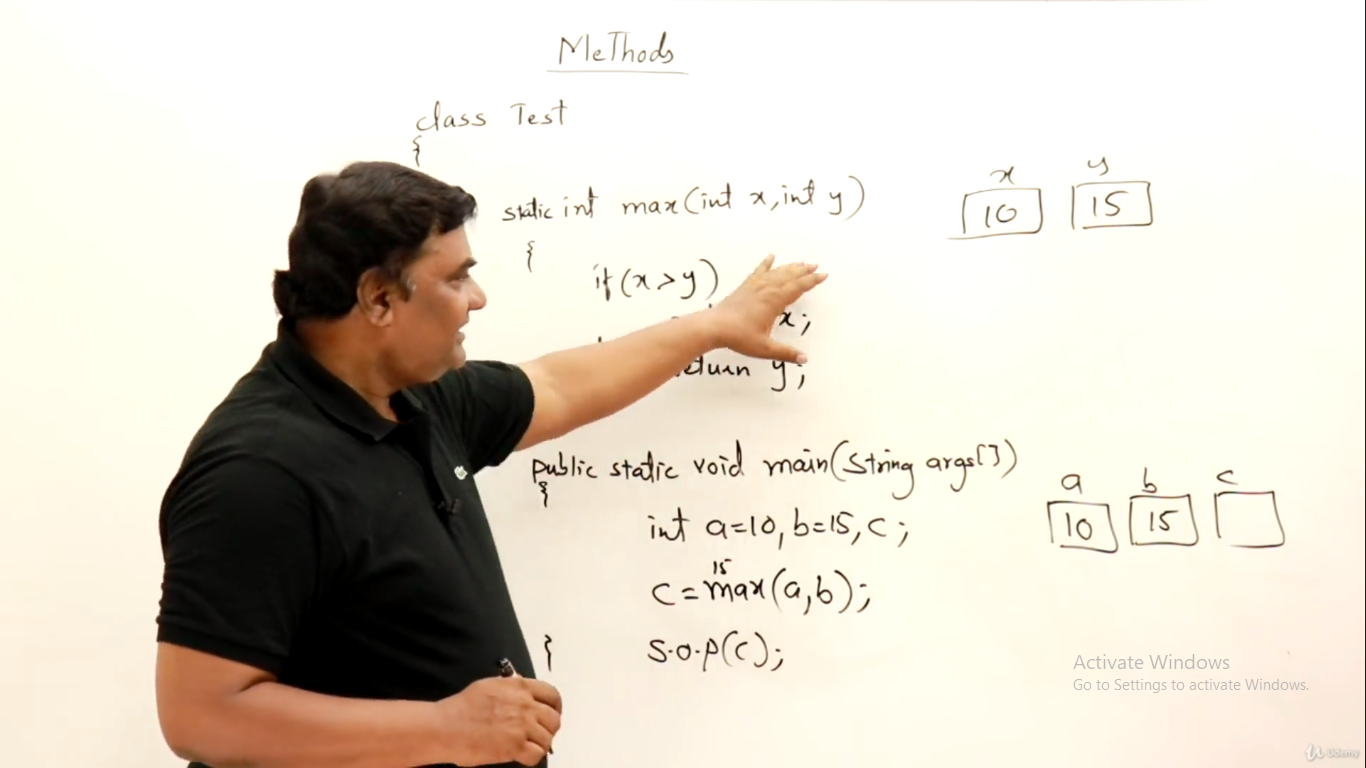 MeThods
class Test
{
static int max(int x, int y)
{
if(x>y)
x;
return y;
x y
10 15
public static void main(String args[])
{
int a=10, b=15, c;
15
c=max(a,b);
s.o.p(c);
}
a b c
10 15
Activate Windows
Go to Settings to activate Windows.
Udemy